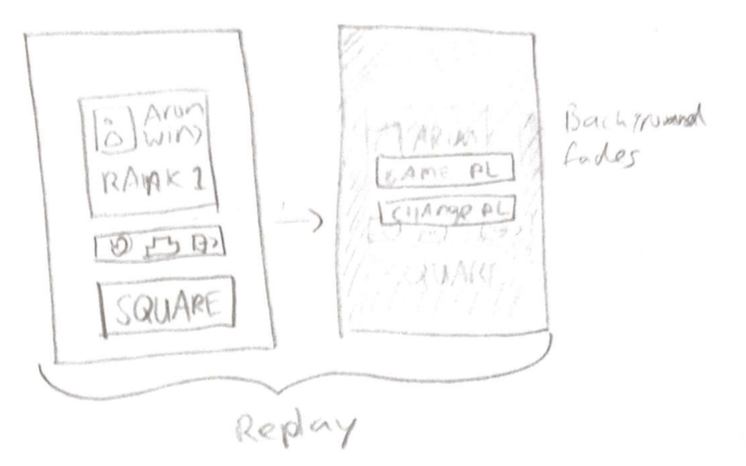 Arun
wins
RANK 1
SQUARE
ARUN
SAME PL
CHANGE PL
SQUARE
Background
fades
Replay